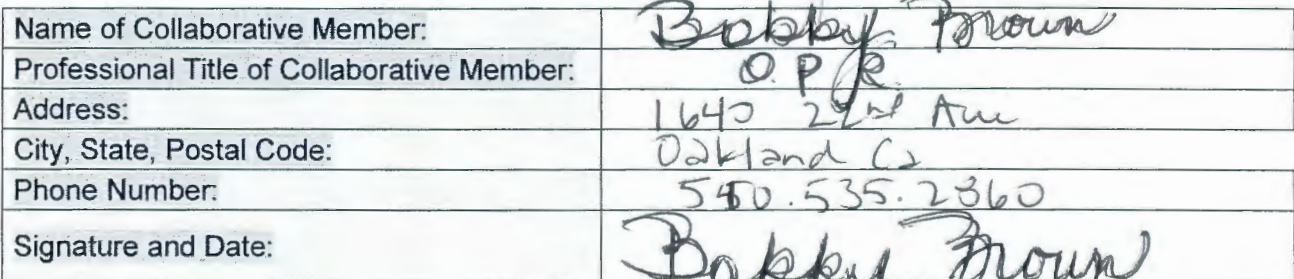 Name of Collaborative Member: Bobby Brown
Professional Title of Collaborative Member: O.P.R.
Address: 1640 22nd Ave
City, State, Postal Code: Oakland Ca
Phone Number: 535.2360
Signature and Date: Bobby Brown